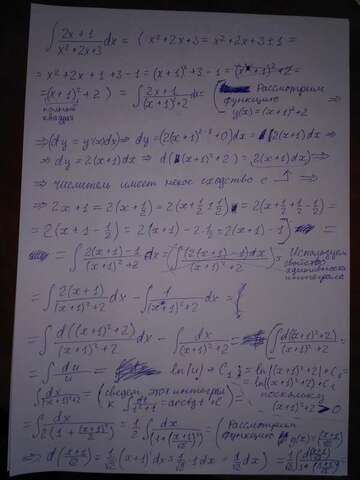 ∫ (2x+1)/(x²+2x+3) dx = ( x²+2x+3 = x²+2x+3±1 =
= x²+2x+1+3-1 = (x+1)²+3-1 = (x+1)²+2 =
= (x+1)²+2 ) = ∫ (2x+1)/((x+1)²+2) dx = ( Рассмотрим
полный квадрат
функцию y(x)=(x+1)²+2 ⇒
⇒ (dy = y'(x)dx) ⇒ dy = (2(x+1)²⁻¹+0)dx = 2(x+1)dx ⇒
⇒ dy = 2(x+1)dx ⇒ d((x+1)²+2) = 2(x+1)dx) ⇒
⇒ числитель имеет некое сходство с ⇒
⇒ 2x+1 = 2(x+½) = 2(x+½+½) = 2(x+½+½-½) =
= 2(x+1-½) = 2(x+1)-2·½ = 2(x+1)-1 ) =
= ∫ (2(x+1)-1)/((x+1)²+2) dx = ( ∫ (2(x+1)-1)dx/((x+1)²+2) = Используем
свойство
интеграла
= ∫ 2(x+1)/((x+1)²+2) dx - ∫ 1/((x+1)²+2) dx =
= ∫ d((x+1)²+2)/((x+1)²+2) - ∫ dx/((x+1)²+2) = ( ∫ d((x+1)²+2)/((x+1)²+2) =
= ∫ du/u = ln|u| + C₁ = ln|(x+1)²+2| + C₁ =
= ln((x+1)²+2)+C₁
поскольку
(x+1)²+2 > 0
∫ dx/((x+1)²+2) = ( сведем этот интеграл
к ∫ dt/(t²+1) = arctg t + C ) =
= ∫ dx/(2(1+(x+1)²/2)) = ½ ∫ dx/(1+((x+1)/√2)²) = ( Рассмотрим
функцию y(x) = (x+1)/√2 ⇒
⇒ d((x+1)/√2) = 1/√2 (x+1)'dx = 1/√2 · 1 · dx = 1/√2 dx )